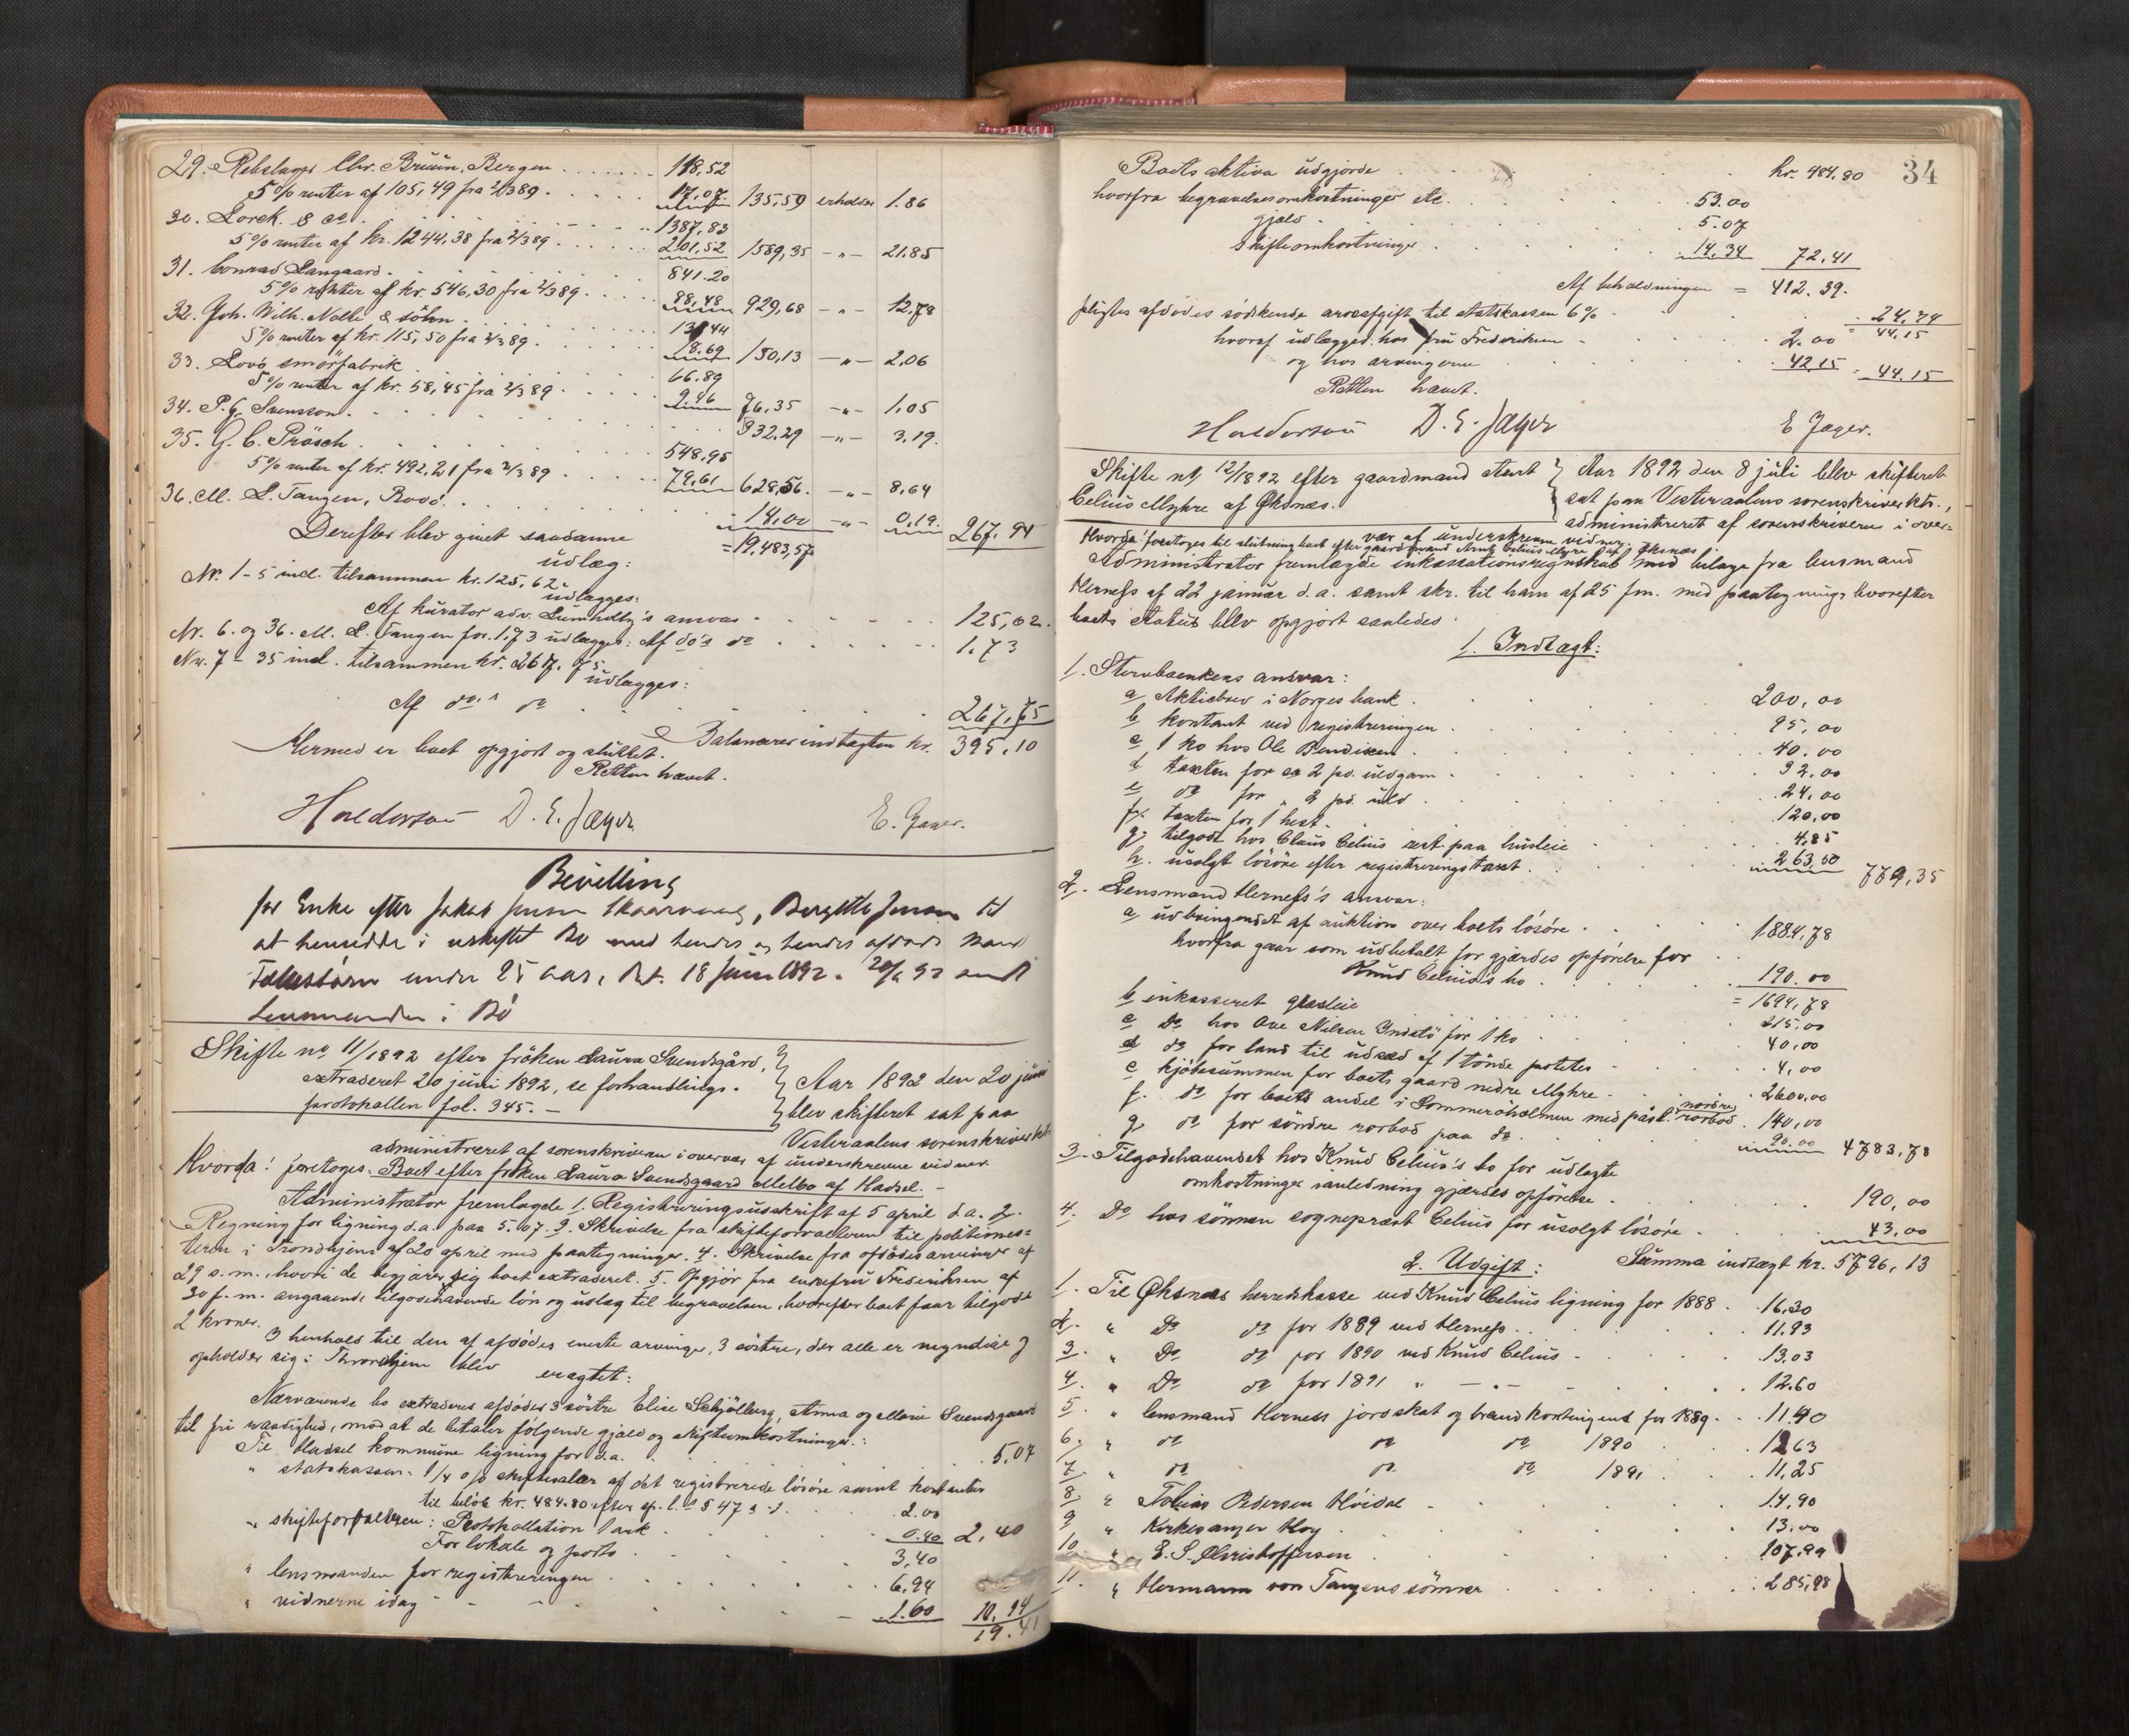 29. Rebslager Chr. Bruun, Bergen . . . . . . 118,52
5% renter af 105,49 fra 2/3 89 . . . . 17,07 135,59 erholder 1.86
30. Lorck & co. . . . 1387,83
5% renter af kr. 1244,38 fra 2/3 89 . . . . 201,52 1589,35 -"- 21.85
31. Conrad Langaard . . . . 841.20
5% renter af kr. 546,30 fra 2/3 89 . . . . 88,48 929,68 -"- 12,78
32. Joh. Wilh. Nolle & söhn . . . . 131,44
5% renter af kr. 115,50 fra 2/3 89 . . . . 18.69 150,13 -"- 2,06
33. Lovö smörfabrik . . . . 66.89
5% renter af kr. 58,45 fra 2/3 89 . . . . 9.46 76,35 -"- 1,05
34. P. G. Svensson . . . . 232,29 -"- 3,19.
35. G. C. Prösch . . . . 548,95
5% renter af kr. 492,21 fra 2/3 89 . . . . 79,61 628,56. -"- 8,64
36. M. L. Tangen, Bodö . . . . 14,00 -"- 0,19. 267.94
Derefter blev givet saadanne = 19,483,57
udlæg:
Nr. 1-5 incl. tilsammen kr. 125,62
udlægges:
Af kurator adv. Lumholtz's ansvar . . . . 125,62.
Nr. 6. og 36. M. L. Tangen for 1,73 udlægges: Af do's do . . . . 1.73
Nr. 7-35 incl. tilsammen kr. 267.75
udlægges:
Af do.s do . . . . 267,75
Balancerer indtægten kr. 395,10
Hermed er boet opgjort og sluttet.
Retten hævet.
Haldorsen D. E. Jæger E. Jæger.
Bevilling
for Enke efter Jakob Jensen Skaarvaag, Bergitte Jensen til
at hensidde i uskiftet Bo med hendes og hendes afdøde Mands
Fællesbørn under 25 aar, dat. 18 Juni 1892. 20/6 92 sendt
Lensmanden i Bö
Skifte no 11/1892 efter fröken Laura Svendsgård,
extraderet 20 juni 1892, se forhandlings-
protokollen fol. 345. -
Aar 1892 den 20 juni
blev skifteret sat paa
Vesteraalens sorenskriverktr.
administreret af sorenskriveren i overvær af underskrevne vidner.
Hvorda! foretoges. Boet efter fröken Laura Svendsgaard Melbo af Hadsel. -
Administrator fremlagde 1. Registreringsudskrift af 5 april d.a. 2.
Regning for ligning d.a. paa 5.07. 3. Skrivelse fra skifteforvalteren til politimes=
teren i Trondhjem af 20 april med paategninger. 4. Skrivelse fra afdödes arvinger af
29 s.m., hvori de begjærer sig boet extraderet. 5. Opgjör fra enkefru Frederiksen af
30 f.m. angaaende tilgodehavende lön og udlæg til begravelsen, hvorefter boet faar tilgode
2 kroner.
I henhold til den af afdödes eneste arvinger, 3 söstre, der alle er myndige og
opholder sig i Throndhjem blev
eragtet:
Nærværende bo extraderes afdödes 3 söstre Elise Schjölberg, Anna og Marie Svendsgaard
til fri raadighed, mod at de betaler fölgende gjæld og skifteomkostninger.:
Til Hadsel kommune ligning for d.a. . . . . 5.07
" statskassen: 1/4 o/o skiftesalær af det registrerede lösöre samt kontanter
til beløb kr. 484.80 efter sp. l. s § 47 2.00
" skifteforvalteren: Protokollation 1 ark . . . . 0.40 2,40
For lokale og porto . . . . 3,40
" lensmanden for registreringen . . . . 6,94
" vidnerne idag . . . . 1.60 10.94
19.41
34
Boets aktiva udgjorde . . . . kr. 484.80
hvorfra begravelsesomkostninger etc. . . . . 53.00
gjæld . . . . 5.07
skifteomkostninger . . . . 14.34 72.41
Af beholdningen = 412.39.
pligtes afdödes södskende arveafgift til statskassen 6% . . . . 24.74
= 44.15
hvoraf udlægges hos fru Frederiksen . . . . 2.00
og hos arvingerne . . . . 42.15 = 44.15
Retten hævet.
Haldorsen D. E. Jæger E Jæger.
Skifte no 12/1892 efter gaardmand Arnt
Celius Myhre af Øksnes.
Aar 1892 den 8 juli blev skifteret
sat paa Vesteraalens sorenskriverktr.,
administreret af sorenskriveren i over=
vær af underskrevne vidner.
Hvorda! foretoges til slutning boet efter gaardmand Arnt Celius Myhre af Øksnæs.
Administrator fremlagde inkassationsregnskab med bilage fra lensmand
Herness af 22 januar d.a. samt skr. til ham af 25 f.m. med paategning, hvorefter
boets status blev opgjort saaledes:
1. Indtægt:
1. Stervboenkens ansvar:
a Aktiebrev i Norges bank . . . . 200,00
b kontant ved registreringen . . . . 95,00
c 1 ko hos Ole Bendixen . . . . 40.00
d taxten for ca 2 pd. uldgarn . . . . 32.00
e do for " 2 pd. uld . . . . 24,00
f. taxten for 1 hest . . . . 120,00
g. tilgode hos Claus Celius rest paa husleie . . . . 4,85
h. usolgt lösöre efter registreringstaxt . . . . 263,50 779,35
2. Lensmand Herness's ansvar:
a udbringendet af auktion over boets lösöre . . . . 1884,78
hvorfra gaar som udbetalt for gjærdes opförelse for
Knud Celius's bo . . . . 190.00
= 1694,78
b inkasseret græsleie . . . . 215.00
c Do hos Ove Nilsen Indstö for 1 ko . . . . 40,00
d do for land til udsæd af 1 tönde poteter . . . . 4,00
e kjöbesummen for boets gaard nedre Myhre . . . . 2600,00
f. do for boets andel i Sommeröholmen med paast. nordre rorbod . 140,00
g do for söndre rorbod paa do . . . . 90.00 4783,78
3. Tilgodehavendet hos Knud Celius's bo for udlagte
omkostninger anledning gjærdes opförelse . . . . 190,00
4. Do hos sönnen sogneprest Celius for usolgt lösöre . . . . 43,00
Summa indtægt kr. 5796,13
2. Udgift:
1. Til Øksnæs herredskasse ved Knud Celius ligning for 1888 . . 16.30
2. " Do do for 1889 ved Herness . . . . 11.93
3. " Do do for 1890 ved Knud Celius . . . . 13.03
4. " Do do for 1891 " -"- . . . . 12.60
5. " lensmand Herness jordskat og brandkontingent for 1889 . . 11.40
6. " do do do 1890 . . 12,63
7. " do do do 1891 . . 11,25
8. " Tobias Pedersen Höidal . . . . 14,90
9 " Kirkesanger Hoy . . . . 13.00
10. " E. S. Christoffersen . . . . 107,99
11. " Hermann von Tangens sönner . . . . 285,98